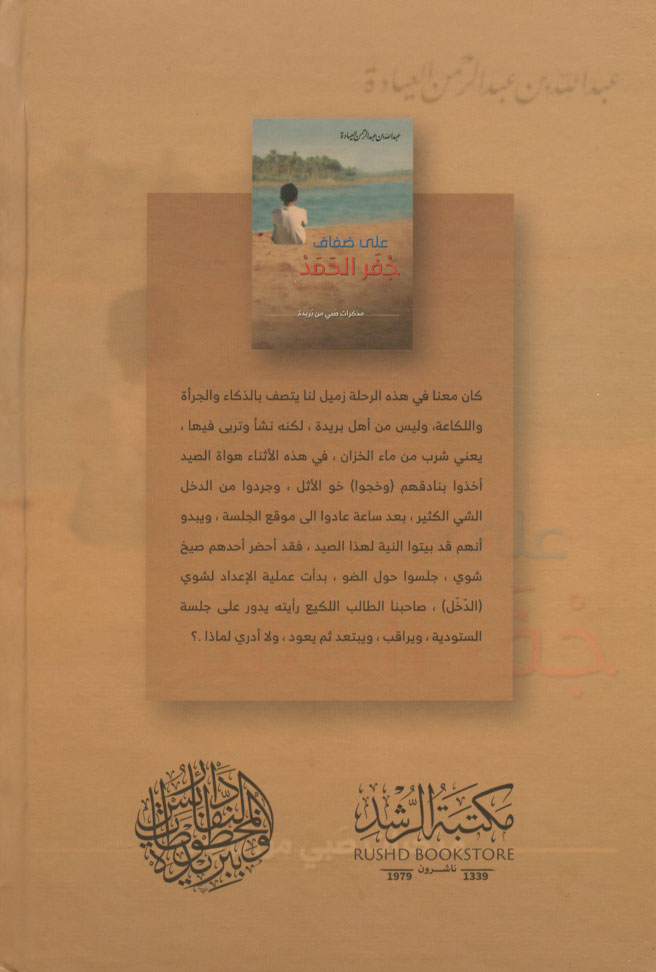 عبدالله بن عبدالرحمن العيادة
عبدالله بن عبدالرحمن العيادة
على ضفاف
جُفَر الحَمَدْ
مذكرات صَبي من بُريدة
كان معنا في هذه الرحلة زميل لنا يتصف بالذكاء والجرأة
واللكاعة، وليس من أهل بريدة ، لكنه نشأ وتربى فيها ،
يعني شرب من ماء الخزان ، في هذه الأثناء هواة الصيد
أخذوا بنادقهم (وخجوا) خو الأثل ، وجردوا من الدخل
الشي الكثير ، بعد ساعة عادوا الى موقع الجلسة ، ويبدو
أنهم قد بيتوا النية لهذا الصيد ، فقد أحضر أحدهم صيخ
شوي ، جلسوا حول الضو ، بدأت عملية الإعداد لشوي
(الدّخّل) ، صاحبنا الطالب اللكيع رأيته يدور على جلسة
الستودية ، ويراقب ، ويبتعد ثم يعود ، ولا أدري لماذا .؟
دار النفائس
والمخطوطات
ببريدة
مكتبة الرشد
RUSHD BOOKSTORE
ناشرون
1979 1339